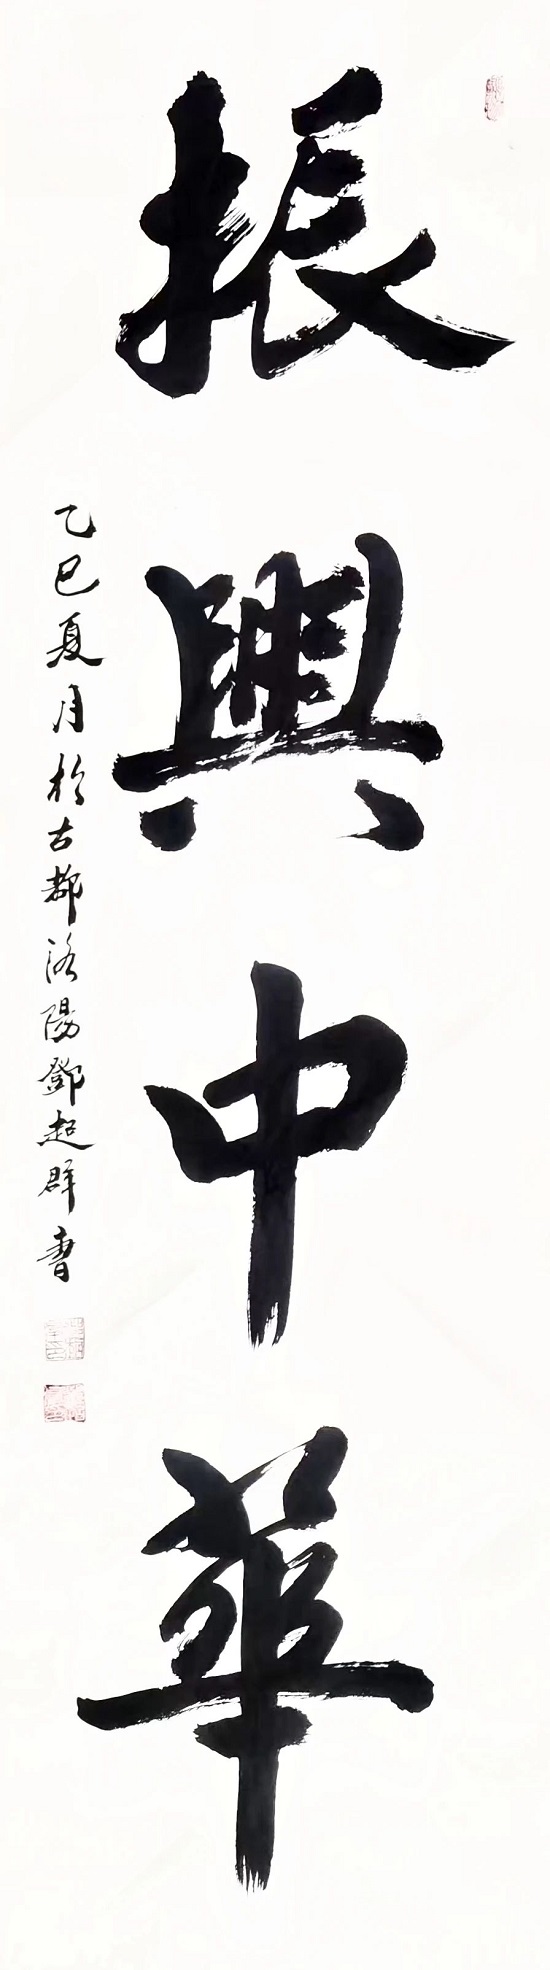 振興中華
乙巳夏月於古都洛陽鄧超群書